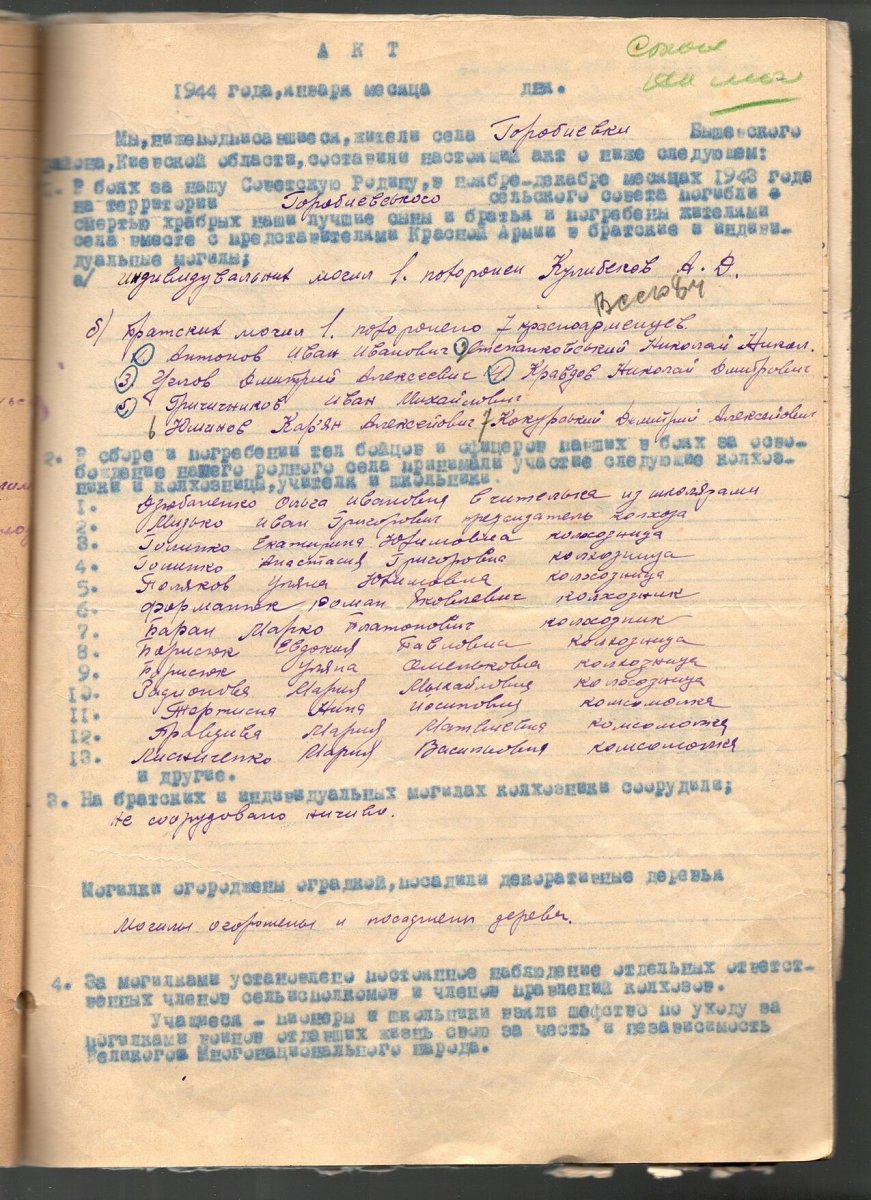 А К Т
1944 года, января месяца дня.
Мы, нижеподписавшиеся, жители села Горобиевки Бышевского
района, Киевской области, составили настоящий акт о ниже следующем:
1. В боях за нашу Советскую Родину, в ноябре-декабре месяцах 1943 года
на территории Горобиевського сельского совета погибли
смертью храбрых наши лучшие сыны и братья и погребены жителями
села вместе с представителями Красной Армии в братские и индиви-
дуальные могилы;
а/ индивидувальних могил 1. похоронен Кулибеков А. Д.
б) братских могил 1. похоронено 7 красноармейцев
1. Антонов Иван Иванович Николай Никол.
3. Углов Дмитрий Алексеевич 4. Кравцов Николай Дмитрович
5. Гричичников Иван Михайлович
6 Юминов Кар'ян Алексейович 7 Кокурський Дмитрий Алексейович
2. В сборе и погребении тел бойцов и офицеров павших в боях за осво-
бождение нашего родного села принимали участие следующие колхоз-
ники и колхозницы, учителя и школьники.
1. Дзюбаленко Ольга Ивановна вчителька из школярами
2. Мизько Иван Григорович председатель колхоза
3. Голипко Екатирина Юхимовна колхозница
4. Голипко Анастасия Григоровна колхозница
5. Поляков Уляна Юхимовна колхозница
6. Форманюк Роман Яковлевич колхозник
7. Баран Марко Платонович колхозник
8. Борисюк Евдокия Павловна колхозница
9. Борисюк Уляна Омельковна колхозница
10. Мария Михайловна колхозница
11. Нина Иосиповна комсомолка
12. Правдива Мария Матвиевна комсомолка
13. Лисниченко Мария Василовна комсомолка
и другие.
3. На братских и индивидуальных могилах колхозники соорудили;
не соорудовано ничиво.
Могилки огорожены оградкой, посадили декоративные деревья
Могилы огорожены и посаджены деревя.
4. За могилками установлено постоянное наблюдение отдельных ответст-
венных членов сельисполкомов и членов правлений колхозов.
Учащиеся - пионеры и школьники взяли шефство по уходу за
могилками воинов отдавших жизнь свою за честь и независимость
Великого Многонационального народа.